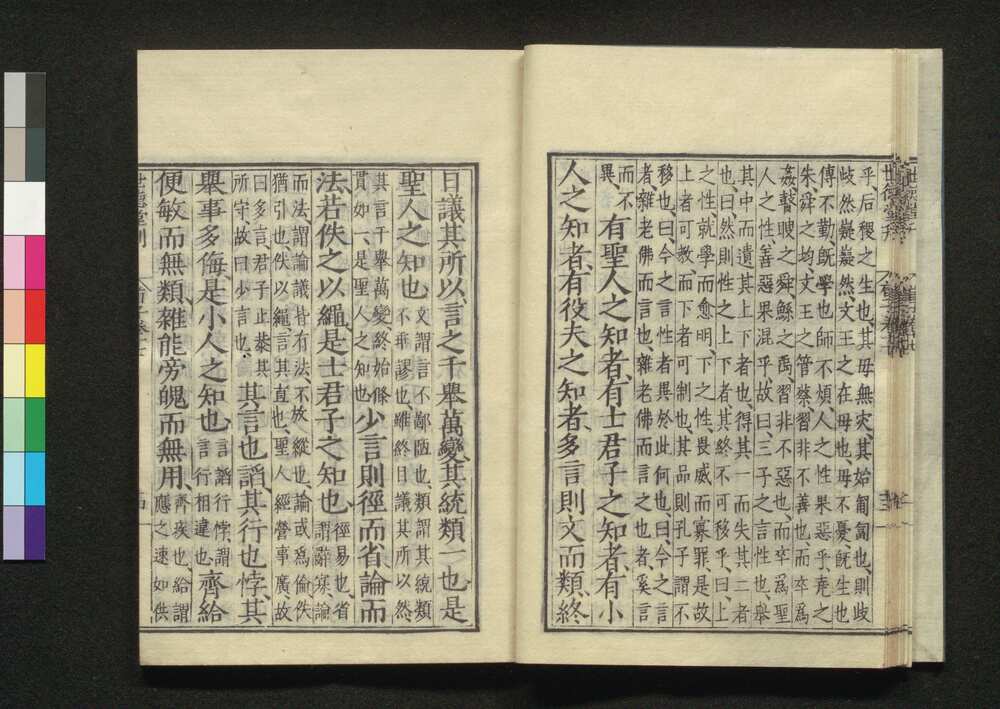 乎、后稷之生也、其母無灾、其始匍匐也、則岐
岐然嶷嶷然、文王之在母也、母不憂旣生也
傅不勤、旣學也師不煩、人之性果惡乎、堯之
朱、舜之均、文王之管蔡、習非不善也、而卒爲
姦、瞽瞍之舜、鯀之禹、習非不惡也、而卒爲聖
人之性、善惡果混乎、故曰三子之言性也、舉
其中而遺其上下者也、得其一而失其二者
也、曰然則性之上下者、其終不可移乎、曰上
之性就學而愈明、下之性、畏威而寡罪、是故
上者可教、而下者可制也、其品則孔子謂不
移也、曰今之言性者異於此何也、曰今之言
者、雜老佛而言也、雜老佛而言之也者、奚言
而不
異、
有聖人之知者、有士君子之知者、有小
人之知者、有役夫之知者、多言則文而類、終
日議其所以、言之千舉萬變、其統類一也、是
聖人之知也
文謂言不鄙陋也、類謂其統類
不乖謬也雖終日議其所以然
其言千舉萬變、終始條
貫如一、是聖人之知也
少言則徑而省、論而
法、若佚之以繩、是士君子之知也
徑易也、省
謂辭寡、論
而法、謂論議皆有法不放縱也、論或爲倫佚
猶引也、佚以繩、言其直也、聖人經營事廣、故
曰多言、君子止恭其
所守、故曰少言也
其言也謟、其行也悖、其
舉事多侮、是小人之知也
言謟行悖、謂
言行相違也
齊給
便敏而無類、雜能旁魄而無用、
齊疾也、給謂
應之速如供
世德堂刊